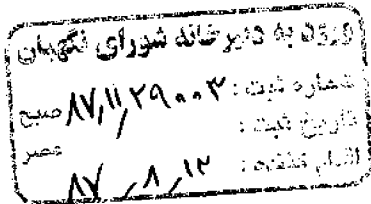 ورود به دبیرخانه شورای نگهبان
شماره ثبت: ۸۷٫۱۱٫۲۹۰۰۳ صبح
تاریخ ثبت: عصر
اقدام کننده: ۸۷ ٫۸٫ ۱۲